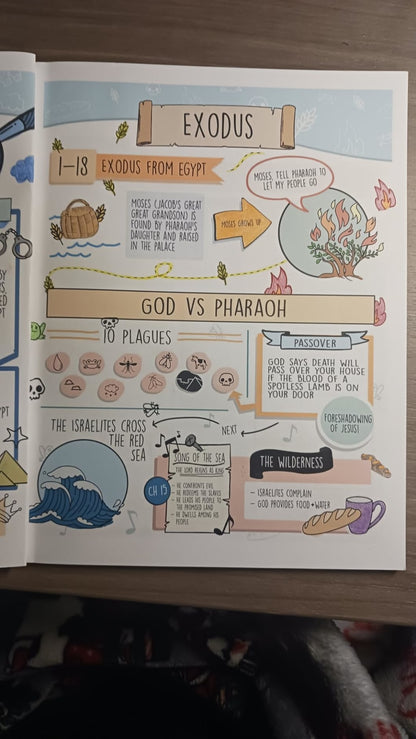 EXODUS
1-18 EXODUS FROM EGYPT
MOSES, TELL PHARAOH TO
LET MY PEOPLE GO
MOSES (JACOB'S GREAT
GREAT GRANDSON) IS
FOUND BY PHARAOH'S
DAUGHTER AND RAISED
IN THE PALACE
MOSES GROWS UP
GOD VS PHARAOH
10 PLAGUES
PASSOVER
GOD SAYS DEATH WILL
PASS OVER YOUR HOUSE
IF THE BLOOD OF A
SPOTLESS LAMB IS ON
YOUR DOOR
FORESHADOWING
OF JESUS!
NEXT
THE ISRAELITES CROSS
THE RED
SEA
SONG OF THE SEA
THE LORD REIGNS AS KING
CH 15
- HE CONFRONTS EVIL
- HE REDEEMS THE SLAVES
- HE LEADS HIS PEOPLE TO
THE PROMISED LAND
- HE DWELLS AMONG HIS
PEOPLE
THE WILDERNESS
- ISRAELITES COMPLAIN
- GOD PROVIDES FOOD + WATER